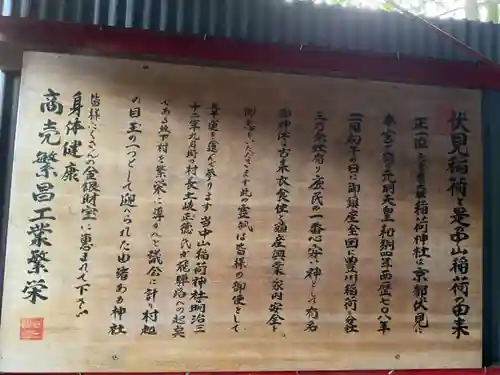 伏見稲荷と是中山稲荷の由来
正一位 稲荷神社は京都伏見に
奉公の宮の元明天皇和銅四年西暦七〇八年
二月初午の日に御鎮座全国に豊川稲荷の分社
三万余社有り庶民の一番心安い神として有名
御神体は古来衣食住を殖産興業家内安全を
御守りくださいます此の霊狐は皆様の御使として
毎年運を運んで参ります当中山稲荷神社明治三
十二年九月時の村長土岐正徳氏が飛騨路への起点
である坂下村を繁栄に導かんと議会に計り村起
の目玉の一つとして迎へられた由緒ある神社
皆様たくさんの金銀財宝に恵まれて下さい
身体健康
商売繁昌工業繁栄